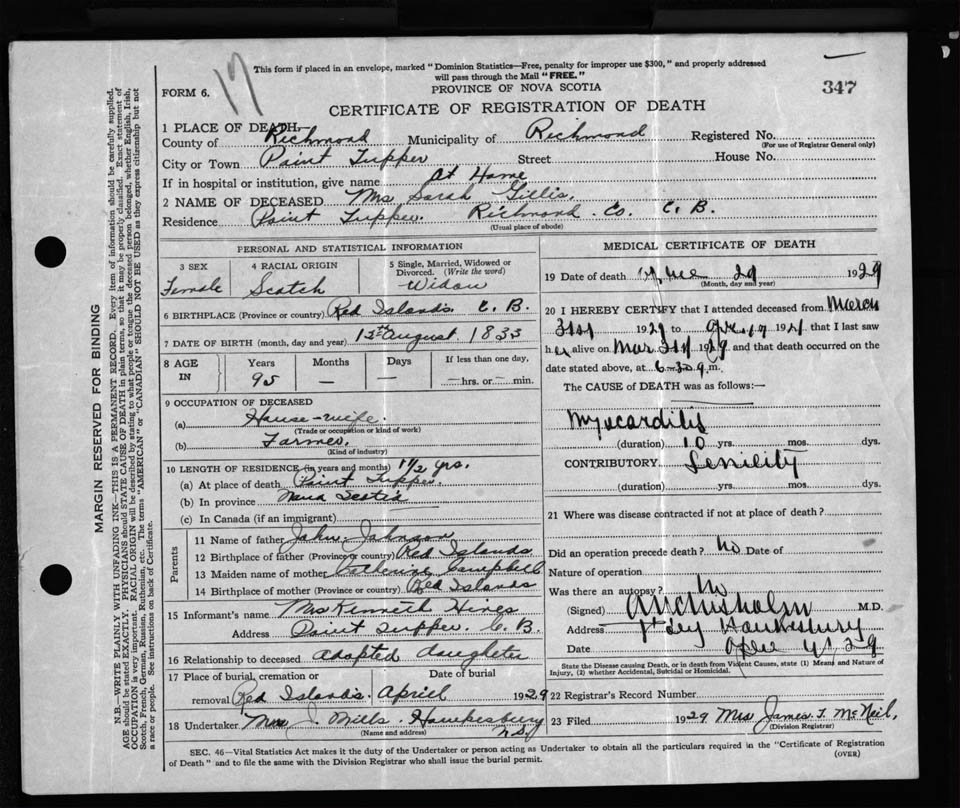 17
This form if placed in an envelope, marked "Dominion Statistics—Free, penalty for improper use $300," and properly addressed
will pass through the Mail "FREE."
347
FORM 6.
PROVINCE OF NOVA SCOTIA
CERTIFICATE OF REGISTRATION OF DEATH
1 PLACE OF DEATH—
County of Richmond Municipality of Richmond Registered No.
(For use of Registrar General only)
City or Town Point Tupper Street House No.
If in hospital or institution, give name At Home
2 NAME OF DECEASED Mrs Sarah Gillis.
Residence Point Tupper. Richmond. Co. C. B.
(Usual place of abode)
PERSONAL AND STATISTICAL INFORMATION
3 SEX
Female
4 RACIAL ORIGIN
Scotch
5 Single, Married, Widowed or Divorced. (Write the word)
Widow
6 BIRTHPLACE (Province or country) Red Islands. C. B.
7 DATE OF BIRTH (month, day and year) August. 1833
8 AGE IN
Years
95
Months
—
Days
—
If less than one day,
—hrs. or—min.
9 OCCUPATION OF DECEASED
(a) House-wife.
(Trade or occupation or kind of work)
(b) Farmer.
(Kind of industry)
10 LENGTH OF RESIDENCE (in years and months) 1 1/2 yrs.
(a) At place of death Point Tupper.
(b) In province Nova Scotia
(c) In Canada (if an immigrant)
Parents
11 Name of father John Johnson
12 Birthplace of father (Province or country) Red Islands
13 Maiden name of mother Catherine Campbell
14 Birthplace of mother (Province or country) Red Islands
15 Informant's name Mrs Kenneth Hines
Address Point Tupper. C. B.
16 Relationship to deceased adopted daughter
17 Place of burial, cremation or removal Red Islands. Date of burial Apriel 1929
18 Undertaker Mrs J. Mills. Hawkesbury N.S.
(Name and address)
MEDICAL CERTIFICATE OF DEATH
19 Date of death 29 1929
(Month, day and year)
20 I HEREBY CERTIFY that I attended deceased from March
31st 1929 to 192 that I last saw
her alive on Mar 31st 1929 and that death occurred on the
date stated above, at 6-30 m.
The CAUSE of DEATH was as follows:—
Myocarditis
(duration) 10 yrs. mos. dys.
CONTRIBUTORY Senility
(duration) yrs. mos. dys.
21 Where was disease contracted if not at place of death?
Did an operation precede death? No Date of
Nature of operation
Was there an autopsy? No
(Signed) Chisholm M.D.
Address Pt Hawkesbury
Date 29
State the Disease causing Death, or in death from Violent Causes, state (1) Means and Nature of
Injury, (2) whether Accidental, Suicidal or Homicidal.
22 Registrar's Record Number
23 Filed 1929 Mrs James T. McNeil,
(Division Registrar)
SEC. 46—Vital Statistics Act makes it the duty of the Undertaker or person acting as Undertaker to obtain all the particulars required in the "Certificate of Registration
of Death" and to file the same with the Division Registrar who shall issue the burial permit.
(OVER)
MARGIN RESERVED FOR BINDING
N.B.—WRITE PLAINLY WITH UNFADING INK—THIS IS A PERMANENT RECORD. Every item of information should be carefully supplied.
AGE should be stated EXACTLY. PHYSICIANS should STATE CAUSE OF DEATH in plain terms, so that it may be properly classified. Exact statement of
OCCUPATION is very important. RACIAL ORIGIN will be described by stating to what people or tongue the deceased person belonged, whether English, Irish,
Scotch, French, German, Russian, Ruthenian, etc. The terms "AMERICAN" or "CANADIAN" SHOULD NOT BE USED as they express citizenship but not
a race or people. See instructions on back of Certificate.